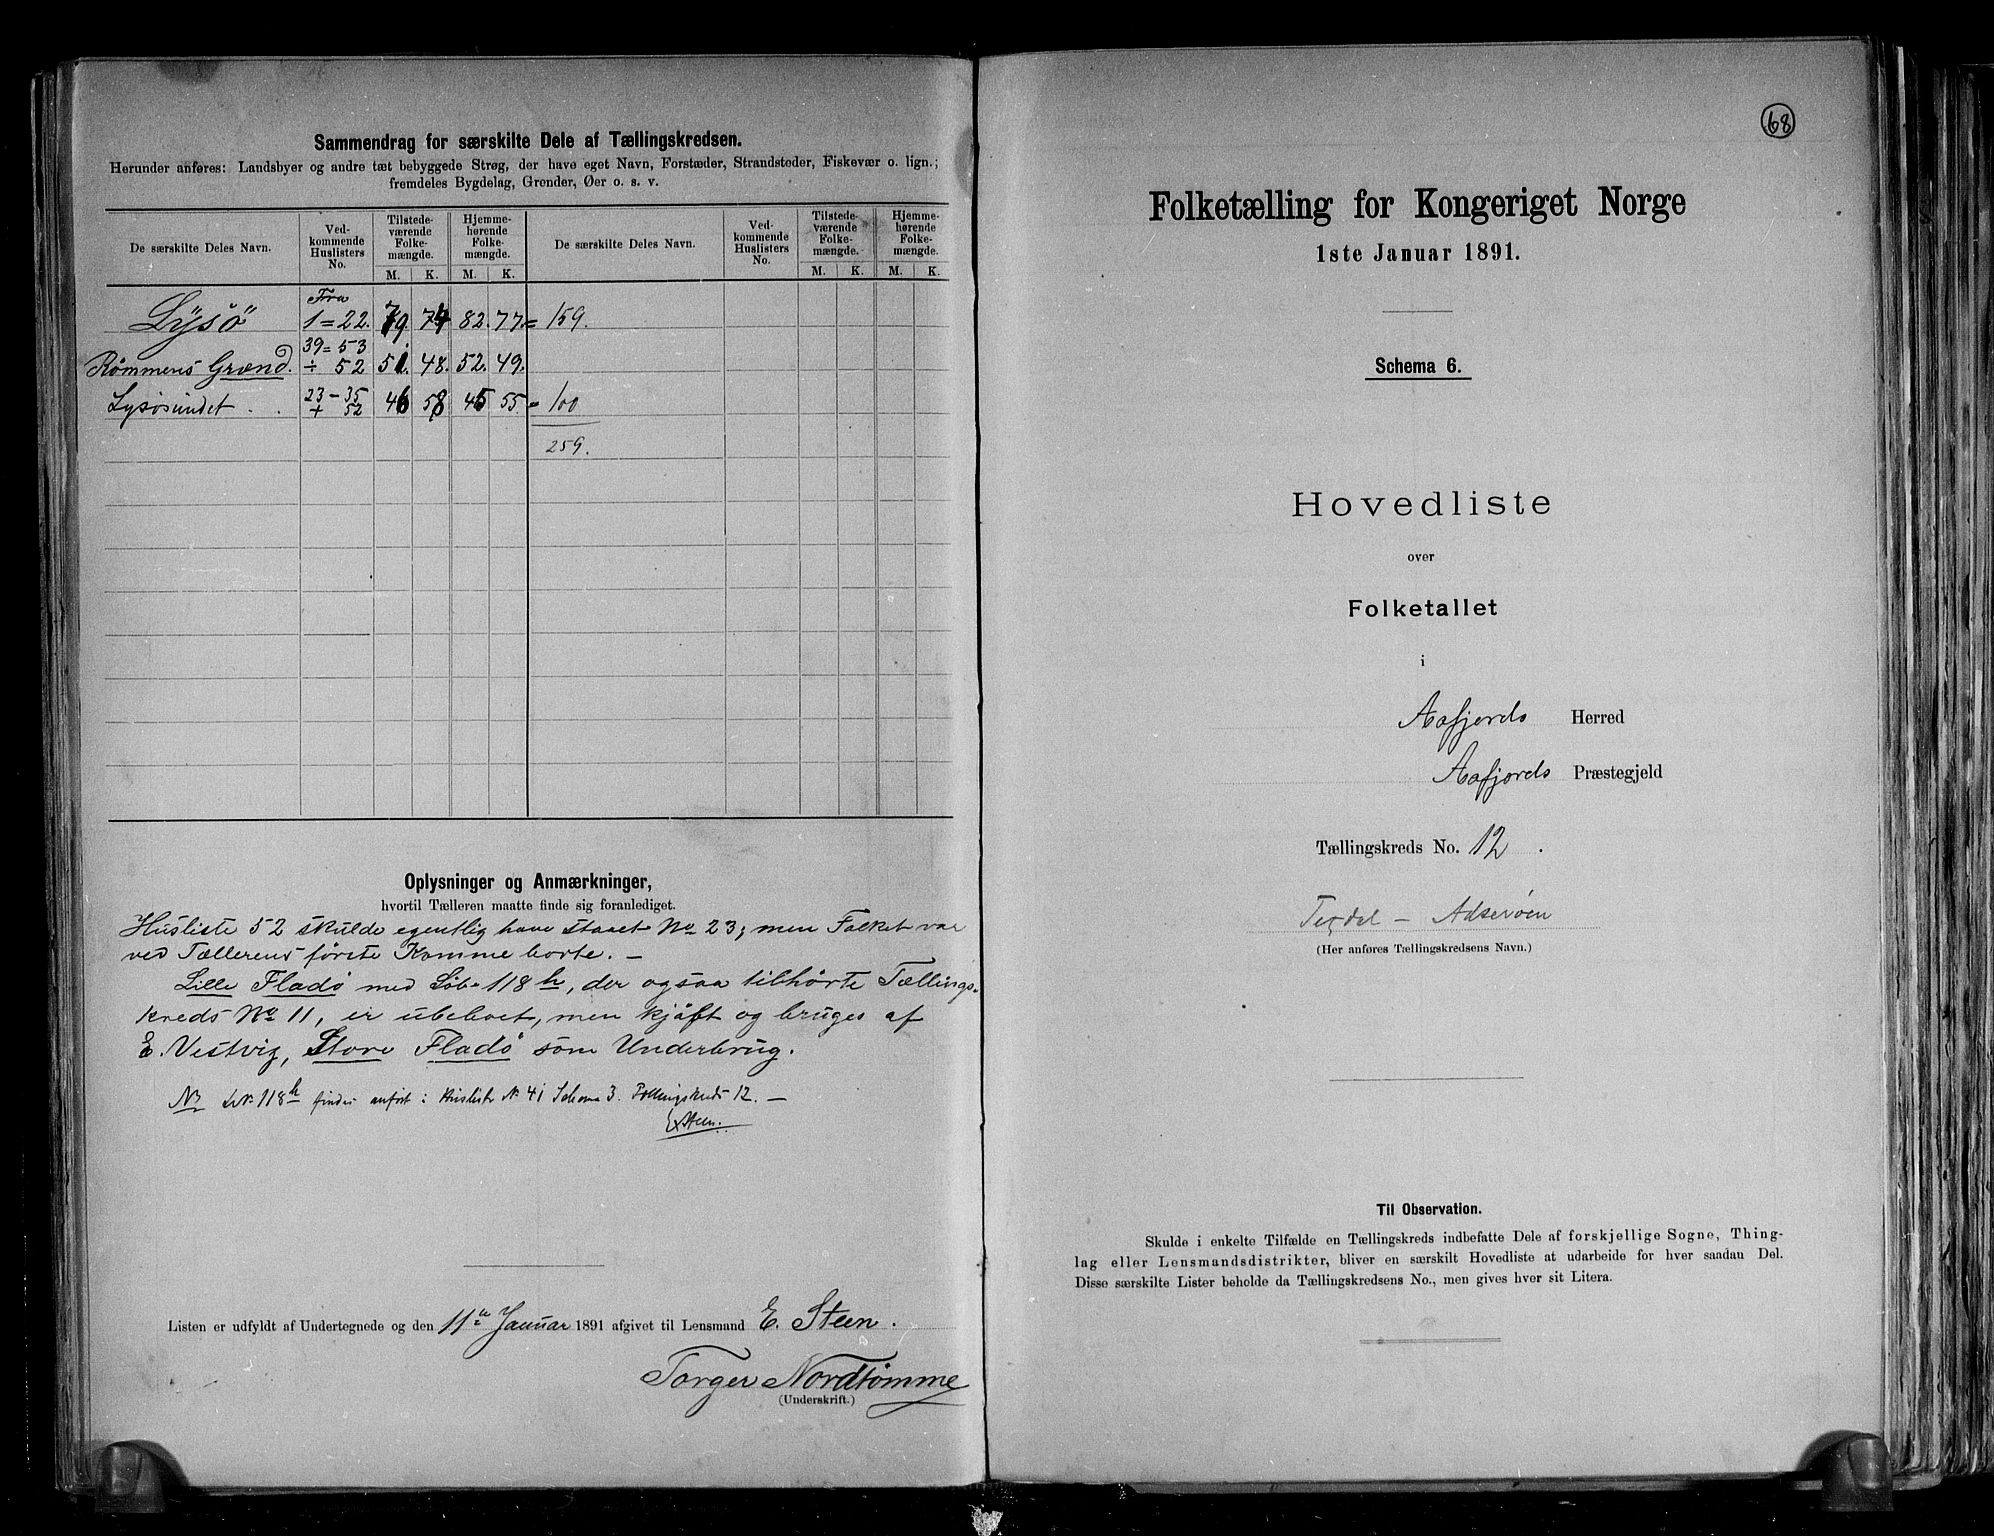 Sammendrag for særskilte Dele af Tællingskredsen.
Herunder anføres: Landsbyer og andre tæt bebyggede Strøg, der have eget Navn, Forstæder, Strandsteder, Fiskevær o. lign.;
fremdeles Bygdelag, Grender, Øer o. s. v.
De særskilte Deles Navn. Ved-kommende Huslisters No. Tilstede-værende Folke-mængde. Hjemme-hørende Folke-mængde. De særskilte Deles Navn. Ved-kommende Huslisters No. Tilstede-værende Folke-mængde. Hjemme-hørende Folke-mængde.
M. K. M. K. M. K. M. K.
Fra
Lysö 1=22. 79. 74 82. 77 = 159.
39 = 53
Rømmens Grænd. ÷ 52 51. 48. 52. 49.
23 - 35
Lysösundet . . + 52 46 58 45 55 = 100
259.
Oplysninger og Anmærkninger,
hvortil Tælleren maatte finde sig foranlediget.
Husliste 52 skulde egentlig have staaet No 23; men Folket var
ved Tællerens første Komme borte. —
Lille Fladö med Löb. 118 h, der ogsaa tilhörte Tællings-
kreds No 11, er ubeboet, men kjöft og bruges af
E. Vestvig, Store Fladö som Underbrug.
118 h findes anført i Huslister N. 41 Schema 3. Tællingskreds 12. —
E Steen.
Listen er udfyldt af Undertegnede og den 11te Januar 1891 afgivet til Lensmand E. Steen.
Torger Nordtømme
(Underskrift.)
68
Folketælling for Kongeriget Norge
1ste Januar 1891.
Schema 6.
Hovedliste
over
Folketallet
i
Aafjords Herred
Aafjords Præstegjeld
Tællingskreds No. 12.
Teqdel — Adserøen
(Her anføres Tællingskredsens Navn.)
Til Observation.
Skulde i enkelte Tilfælde en Tællingskreds indbefatte Dele af forskjellige Sogne, Thing-
lag eller Lensmandsdistrikter, bliver en særskilt Hovedliste at udarbeide for hver saadan Del.
Disse særskilte Lister beholde da Tællingskredsens No., men gives hver sit Litera.